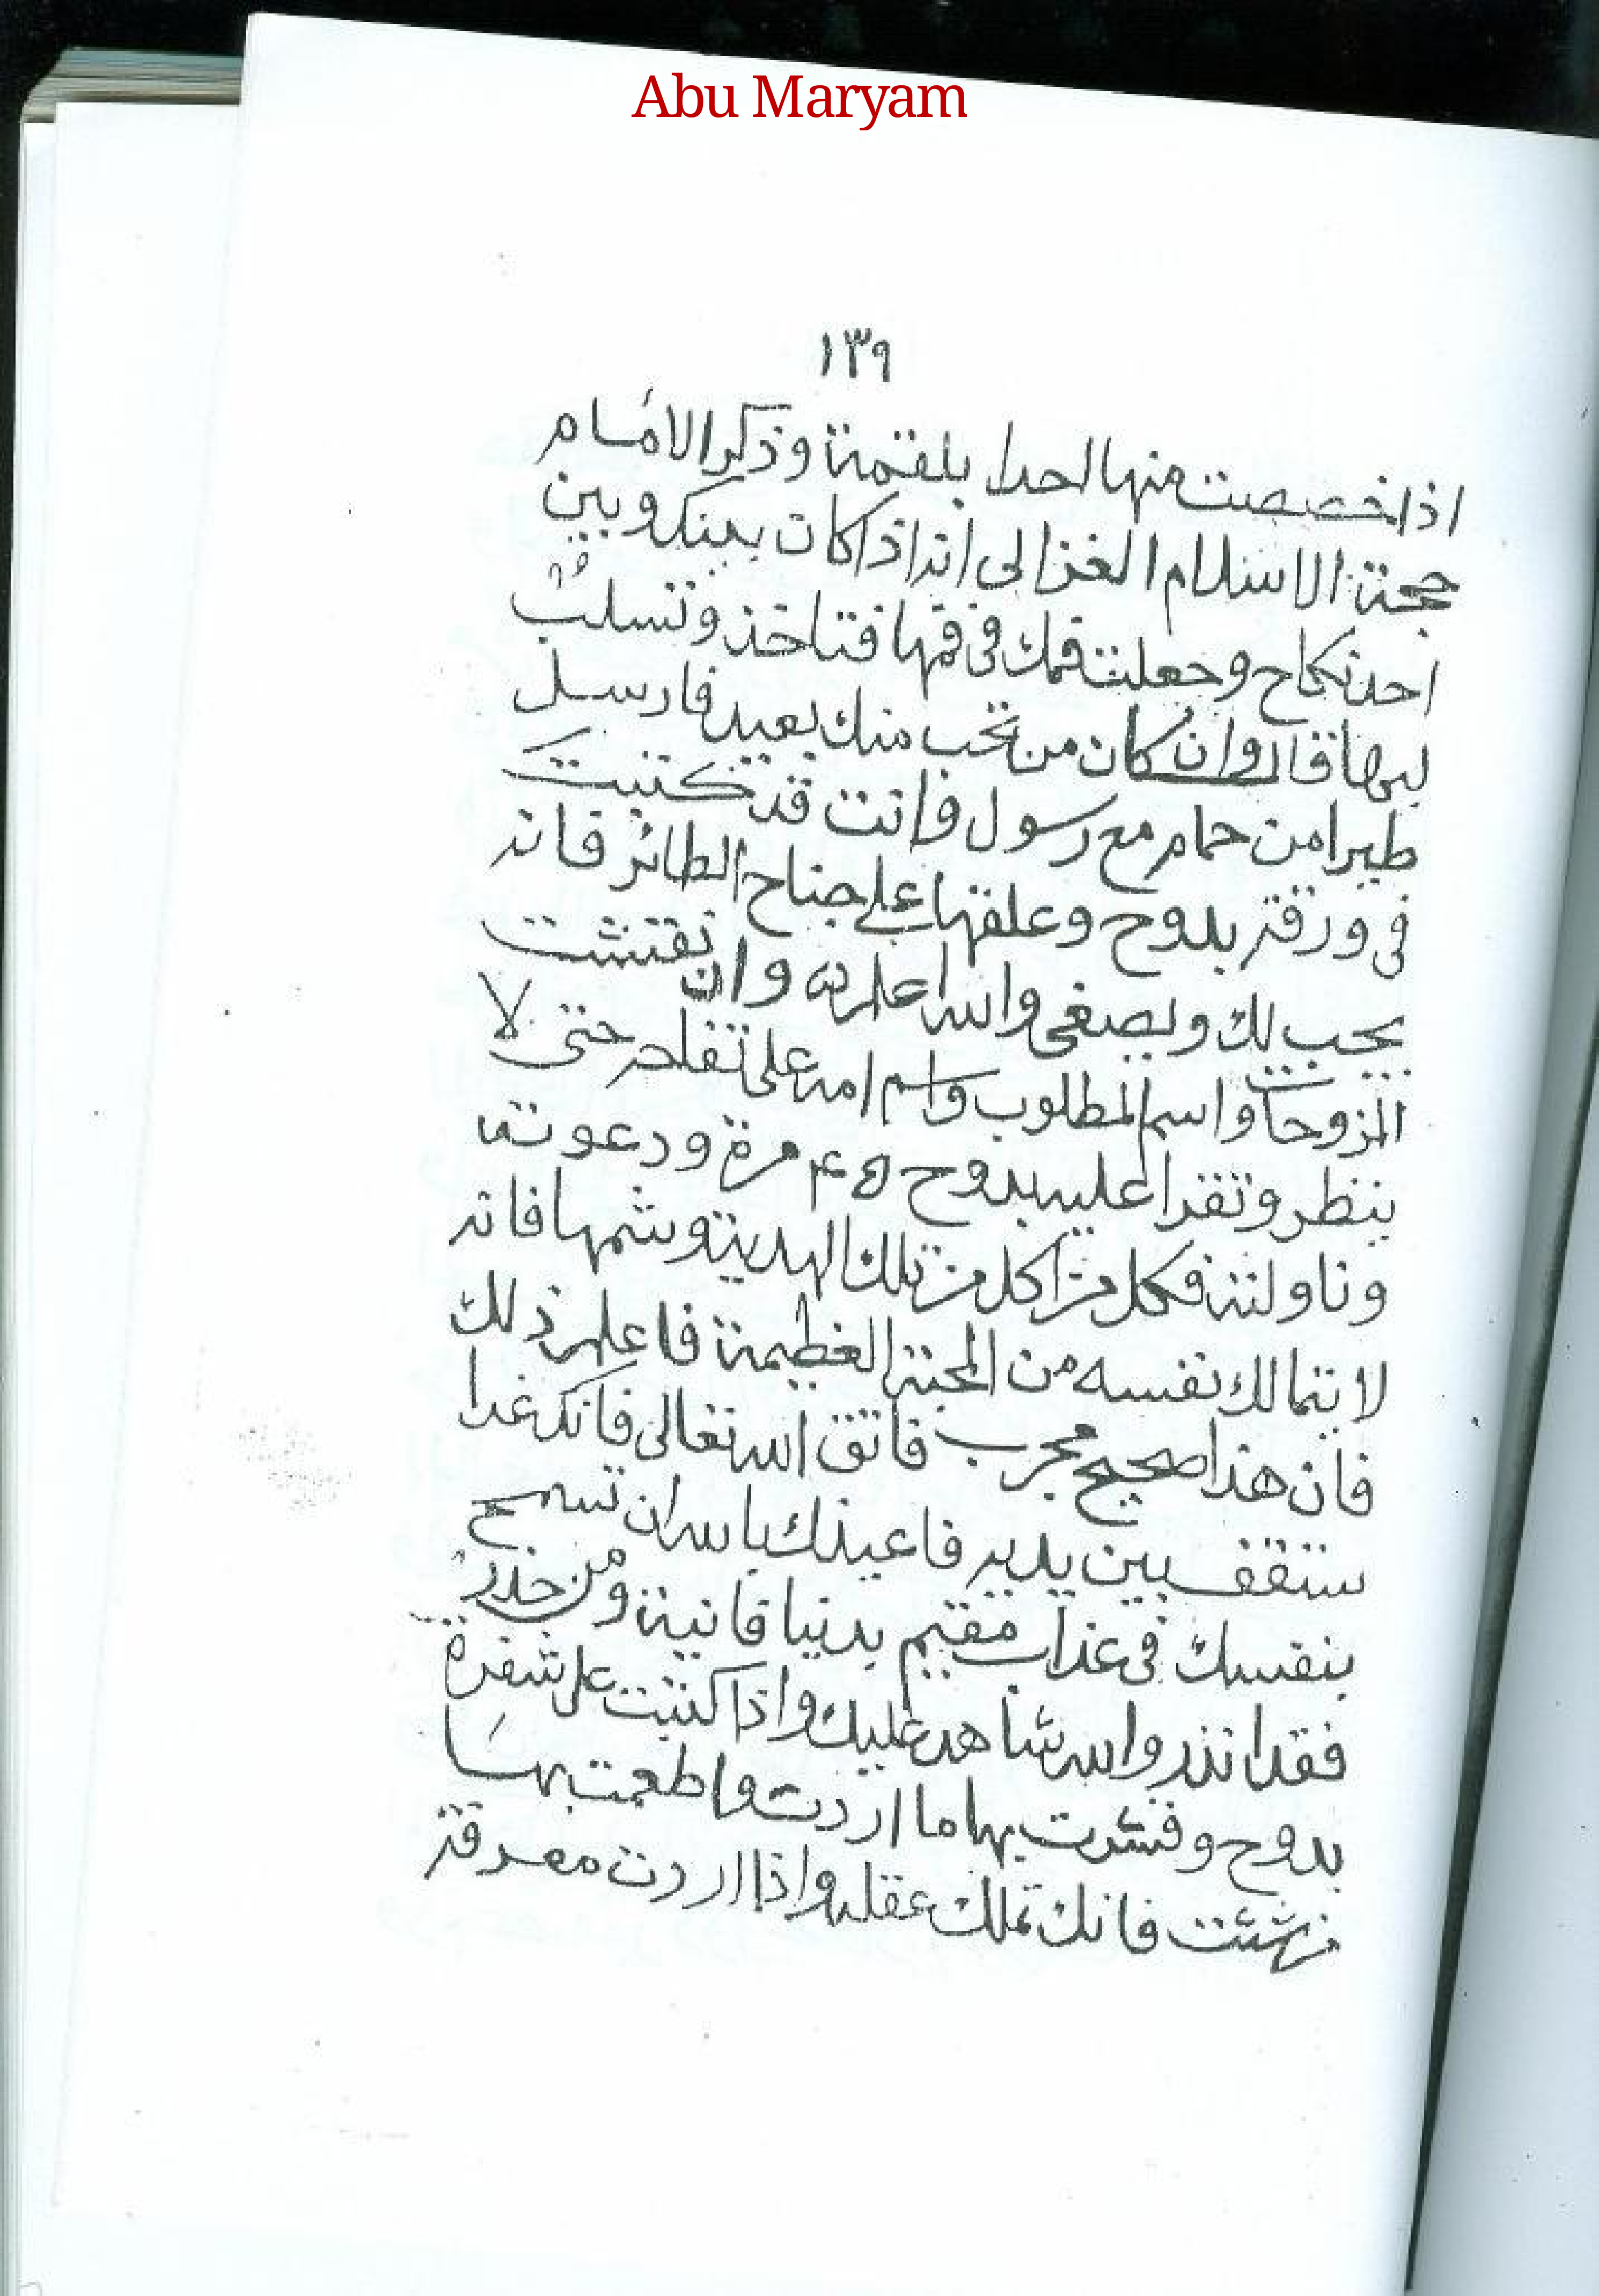 Abu Maryam
١٣٩
اذا خصصت منها احدا بلقمة وذكر الامام
حجة الاسلام الغزالى انه اذا كان بينك وبين
احد نكاح وجعلت فمك فى فمها فتاخذ وتسلب
لبها قال وان كان من تحب منك بعيد فارسل
طيرا من حمام مع رسول وانت قد كتبت
فى ورقة بدوح وعلقها على جناح الطائر فانه
يجب لك ويصغى والله اعلم وان نقشت
المزوجات واسم المطلوب واسم امه على تفاحه حتى لا
ينظر وتقرا عليه بدوح ٤٥ مرة ودعوته
وناولته فكل من اكل من تلك الهدية وشمها فانه
لا يتمالك نفسه من المحبة العظيمة فاعلم ذلك
فان هذا صحيح مجرب فاتق الله تعالى فانك غدا
ستقف بين يديه فاعيذك بالله ان تسمح
بنفسك فى عذاب مقيم بدنيا فانية ومن حذر
فقد انذر والله شاهد عليك واذا كتبت على شفرة
بدوح وقشرت بها ما اردت واطعمت بها
من شئت فانك تملك عقله واذا اردت معرفة